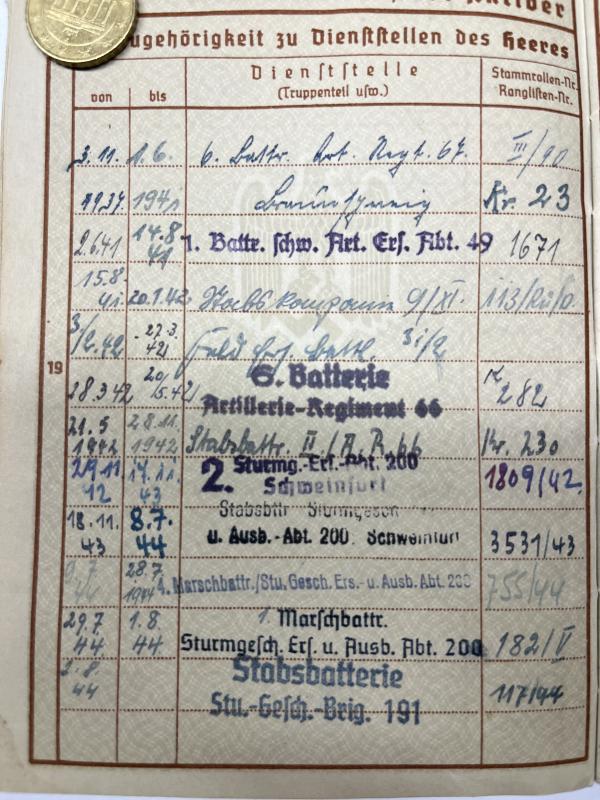 ugehörigkeit zu Dienststellen des Heeres
Dienststelle
(Truppenteil usw.)
Stammrollen-Nr.
Ranglisten-Nr.
von bis
3.11. 1.6. 6. Battr. Art. Regt. 67. III/90
1937 1941 Braunschweig Nr. 23
2.6.41 14.8 41 1. Battr. schw. Art. Ers. Abt. 49 1671
15.8. 41 20.1.42 Stabskompanie 9/XI.
3/2.42 27.3. 42 Feld 3i/2
19
28.3 42 20/5.42 6. Batterie 282
Artillerie-Regiment 66
21.5 1942 28.11. 1942 Stabsbattr. II/A.R.66 Nr. 230
29.11 42 17.11. 43 2. Sturmg.-Ers.-Abt. 200 1809/42
Schweinfurt
18.11. 43 8.7. 44 Stabsbttr Sturmgesch
u. Ausb.-Abt. 200. Schweinfurt 3531/43
9.7 44 28.7 1944 4. Marschbattr./Stu. Gesch. Ers.- u. Ausb. Abt. 200 755/44
29.7 44 1.8 44 1. Marschbattr.
Sturmgesch. Ers. u. Ausb. Abt. 200 182/V
2.8. 44 Stabsbatterie 117/44
Stu.-Gesch.-Brig. 191